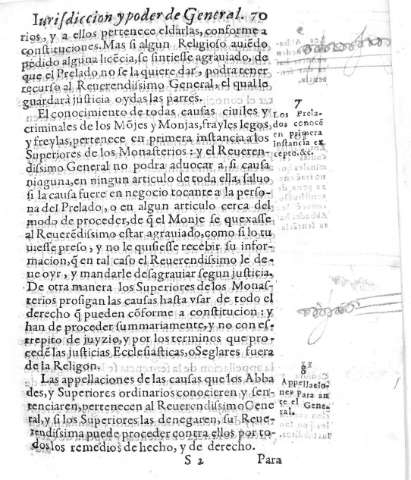 Iurisdiccion y poder de General. 70
rios, y a ellos pertenece eldarlas, conforme a
constituciones. Mas si algun Religioso auiẽdo
pedido alguna licẽcia, se sintiesse agrauiado, de
que el Prelado no se la quiere dar, podra tener
recurso al Reuerendissimo General, el qual le
guardarà justicia oydas las partes.
El conocimiento de todas causas ciuiles y
criminales de los Mõjes y Monjas, frayles legos,
y freylas, pertenece en primera instancia a los
Superiores de los Monasterios: y el Reueren-
dissimo General no podra aduocar a si causa
ninguna, en ningun articulo de toda ella, saluo
si la causa fuere en negocio tocante a la perso-
na del Prelado, o en algun articulo cerca del
modo de proceder, de q̃ el Monje se quexasse
al Reuerẽdissimo estar agrauiado, como si lo tu
uiesse preso, y no le quisiesse recebir su infor-
macion, q̃ en tal caso el Reuerendissimo le de-
ue oyr, y mandarle desagrauiar segun justicia.
De otra manera los Superiores de los Monas-
terios prosigan las causas hasta vsar de todo el
derecho q̃ pueden cõforme a constitucion: y
han de proceder summariamente, y no con es-
trepito de juyzio, y por los terminos que pro-
cedẽ las justicias Ecclesiasticas, o Seglares fuera
de la Religon.
Las appellaciones de las causas que los Abba
des, y Superiores ordinarios conocieren y sen-
tenciaren, pertenecen al Reuerendissimo Gene
ral, y si los Superiores las denegaren, su Reue-
rendissima puede proceder contra ellos por to-
dos los remedios de hecho, y de derecho.
S 2 Para
7
Los Prela-
dos conocẽ
en primera
Instancia ex
cepto. &c.
8
Appellacio-
nes para an
te el Gene-
ral.